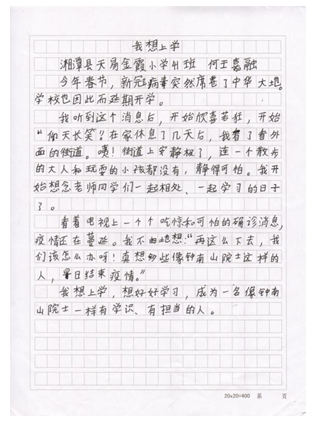 我想上学
湘潭县天易金霞小学41班 何王嘉融
今年春节，新冠病毒突然席卷了中华大地。
学校也因此而延期开学。
我听到这个消息后，开始欣喜若狂，开始
“仰天长笑”？在家休息了几天后，我看了看外
面的街道。唉！街道上安静极了，连一个散步
的大人和玩耍的小孩都没有，静得可怕。我开
始想念老师同学们一起相处、一起学习的日子
了。
看着电视上一个个吃惊和可怕的确诊消息，
疫情还在蔓延。我不由地想：“再这么下去，我
们该怎么办呀！真想多些像钟南山院士这样的
人，早日结束疫情。”
我想上学，想好好学习，成为一名像钟南
山院士一样有学识、有担当的人。
20×20=400 第 页